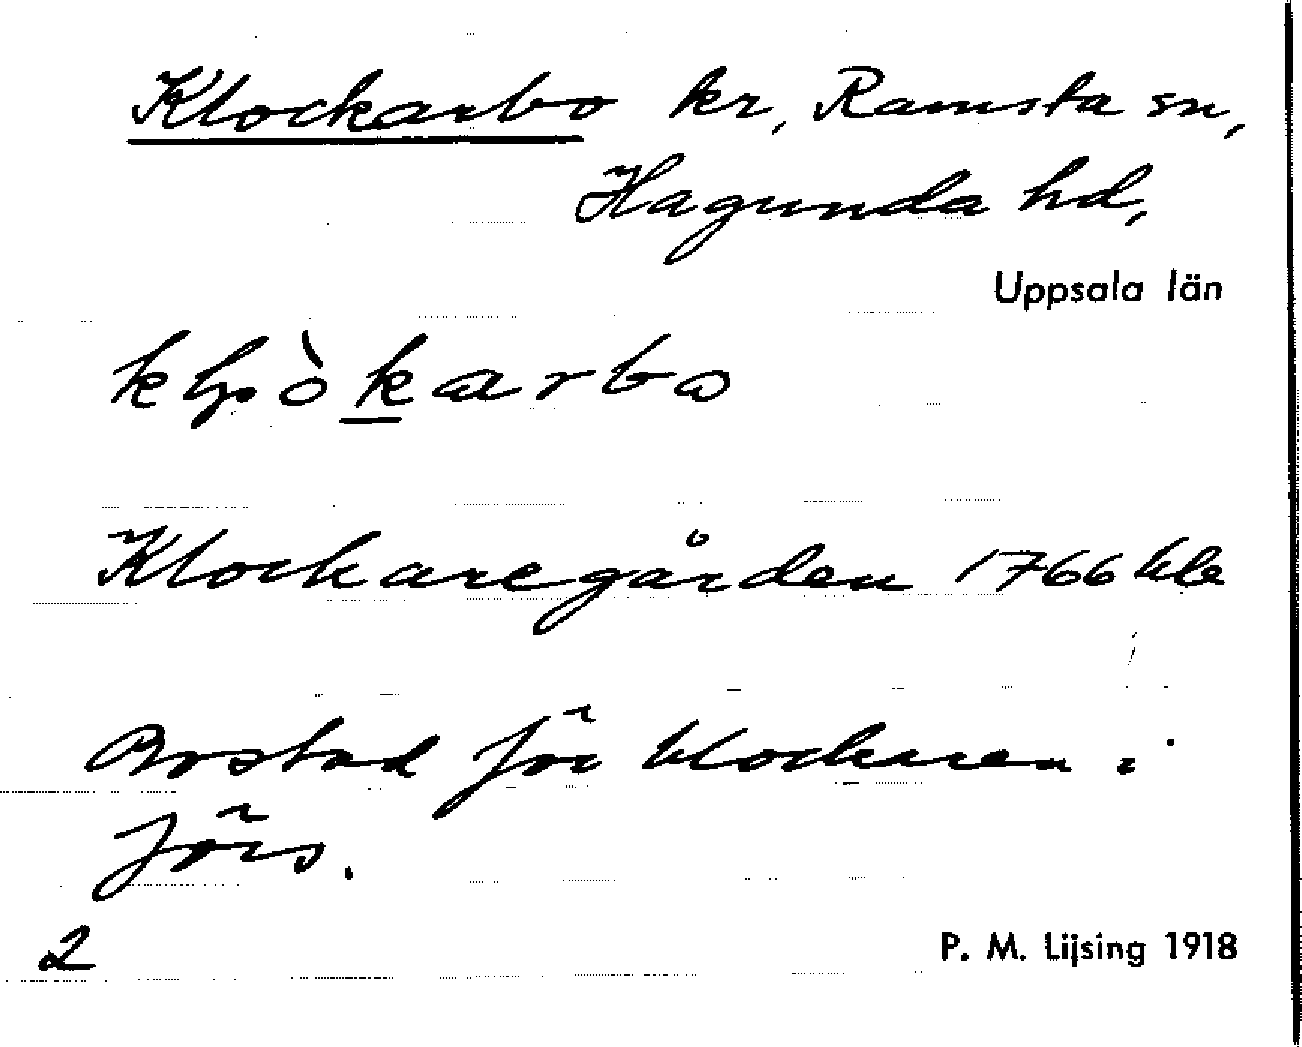 Klockarbo kr, Ramsta sn,
Hagunda hd,
Uppsala län
Klockaregården 1766 kle
Bostad för klockaren i
förs.
2
P. M. Lijsing 1918